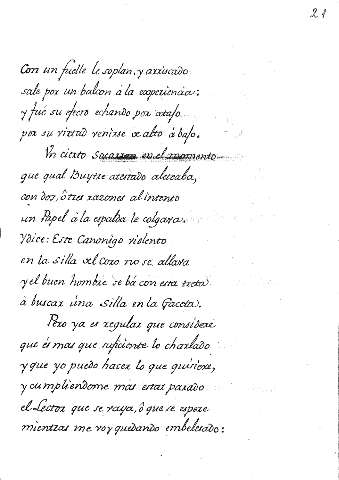 21
Con un fuelle le soplan, y arriscado
sale por un balcon â la experiencia:
y fué su efecto echando por atajo
por su virtud venirse de alto â bajo.
Un cierto en el momento
que qual Buytre acostado aleteaba,
con dos, ô tres razones al intento
un Papel â la espalda le colgara.
Y dice: Este Canonigo violento
en la silla del Coro no se allava
y el buen hombre se bá con esta treta
â buscar úna Silla en la Gaceta.
Pero ya es regular que considere
que és mas que suficiente lo charlado
y que yo puedo hacer lo que quisiere,
y cumpliendome mas estar parado
el Lector que se vaya, ô que se espere
mientras me voy quedando embelesado: